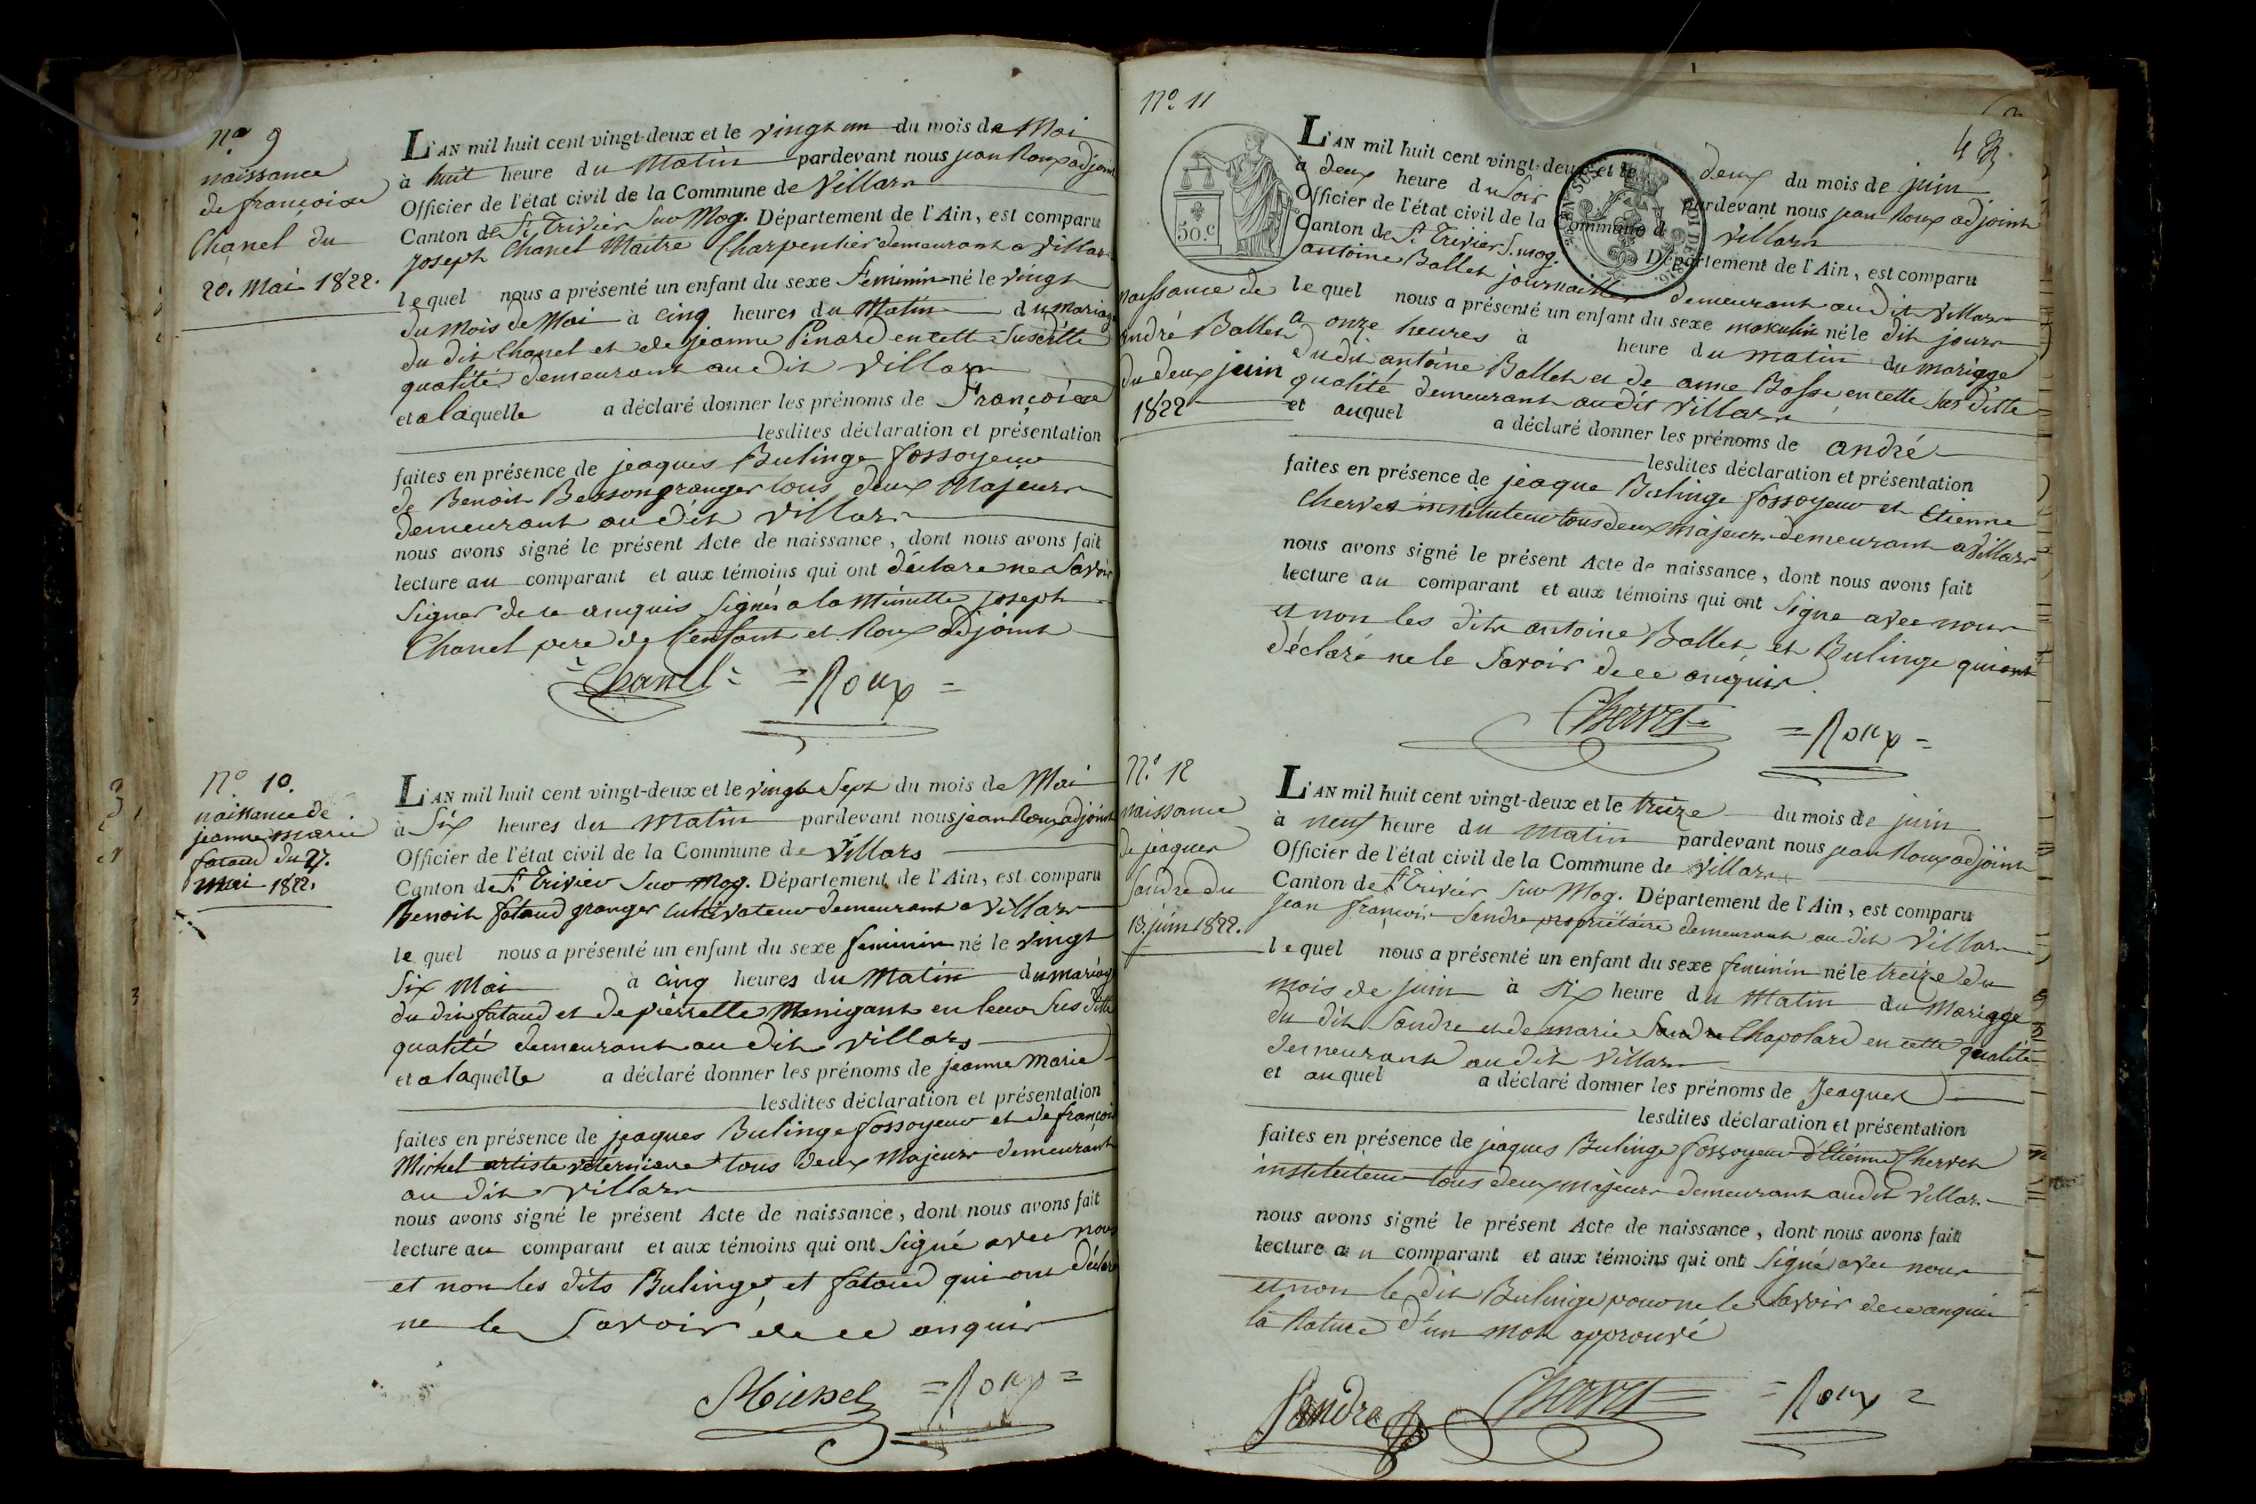 N.o 9
naissance
de francoise
Chanel du
20. Mai 1822.
L'AN mil huit cent vingt-deux et le vingt un du mois de Mai
à huit heure du Matin pardevant nous jean Roux adjoint
Officier de l'état civil de la Commune de Villars
Canton de St Trivier Sur Mog. Département de l'Ain, est comparu
joseph Chanel Maitre Charpentier demeurant a Villars
lequel nous a présenté un enfant du sexe feminin né le vingt
du Mois de Mai à cinq heures du Matin du mariage
du dit Chanel et de jeanne Penard en cette Susditte
qualité demeurant au dit Villars
et a laquelle a déclaré donner les prénoms de Françoise
lesdites déclaration et présentation
faites en présence de jeaques Bulinge fossoyeur
de Benoit Besson granger tous deux Majeurs
demeurant au dit Villars
nous avons signé le présent Acte de naissance, dont nous avons fait
lecture au comparant et aux témoins qui ont déclare ne Savoir
Signer de ce anquis Signés a la Minutte joseph
Chanel pere de l'enfant et Roux adjoint
Chanel = Roux =
N.o 10.
naissance de
jeanne marie
fataud du 27.
Mai 1822.
L'AN mil huit cent vingt-deux et le vingt Sept du mois de Mai
à Six heures du Matin pardevant nous jean Roux adjoint
Officier de l'état civil de la Commune de Villars
Canton de St Trivier Sur Mog. Département de l'Ain, est comparu
Benoit fataud granger cultivateur demeurant a Villars
le quel nous a présenté un enfant du sexe feminin né le vingt
Six Mai à cinq heures du Matin du mariage
du dit fataud et de pierrette Manigant en leur Sus ditte
qualité demeurant au dit Villars
et a laquelle a déclaré donner les prénoms de jeanne Marie
lesdites déclaration et présentation
faites en présence de jeaques Bulinge fossoyeur et de françois
Michel artiste véterniaire tous deux Majeurs demeurant
au dit Villars
nous avons signé le présent Acte de naissance, dont nous avons fait
lecture au comparant et aux témoins qui ont Signé avec nous
et non les dits Bulinge, et fataud qui ont déclare
ne le Savoir de ce anquis
= Roux =
N.o 11
43
50.c
naissance de
andré Ballet
du deux juin
1822
L'AN mil huit cent vingt-deux et le deux du mois de juin
à deux heure du Soir pardevant nous jean Roux adjoint
Officier de l'état civil de la Commune d Villars
Canton de St. Trivier S. mog. Département de l'Ain, est comparu
antoine Ballet journailler demeurant au dit Villars
lequel nous a présenté un enfant du sexe maskulin né le dit jours
a onze heures à heure du matin du mariage
du dit antoine Ballet et de anne Bosse en cette sus ditte
qualité demeurant au dit Villars
et auquel a déclaré donner les prénoms de andré
lesdites déclaration et présentation
faites en présence de jeaque Bulinge fossoyeur et Etienne
Chervet instituteur tous deux majeurs demeurant a Villars
nous avons signé le présent Acte de naissance, dont nous avons fait
lecture au comparant et aux témoins qui ont Signe avec nous
et non les dits antoine Ballet et Bulinge qui ont
déclaré ne le Savoir de ce anquis.
Chervet = Roux =
N.o 12
naissance
de jeaques
Sandre du
13. juin 1822.
L'AN mil huit cent vingt-deux et le treize du mois de juin
à neuf heure du Matin pardevant nous jean Roux adjoint
Officier de l'état civil de la Commune de Villars
Canton de St Trivier Sur Mog. Département de l'Ain, est comparu
jean françois Sandre propriétaire demeurant au dit Villars
lequel nous a présenté un enfant du sexe feminin né le treize du
mois de juin à Six heure du Matin du Mariage
du dit Sandre et de marie Sandre Chapolard en cette qualité
demeurant au dit Villars
et auquel a déclaré donner les prénoms de Jeaques
lesdites déclaration et présentation
faites en présence de jeaques Bulinge fossoyeur d'Etienne Chervet
instituteur tous deux majeurs demeurant au dit Villars
nous avons signé le présent Acte de naissance, dont nous avons fait
lecture au comparant et aux témoins qui ont Signé avec nous
et non le dit Bulinge pour ne le Savoir de ce anquis
la Rature d'un mot approuvé
Sandre Chervet = Roux =